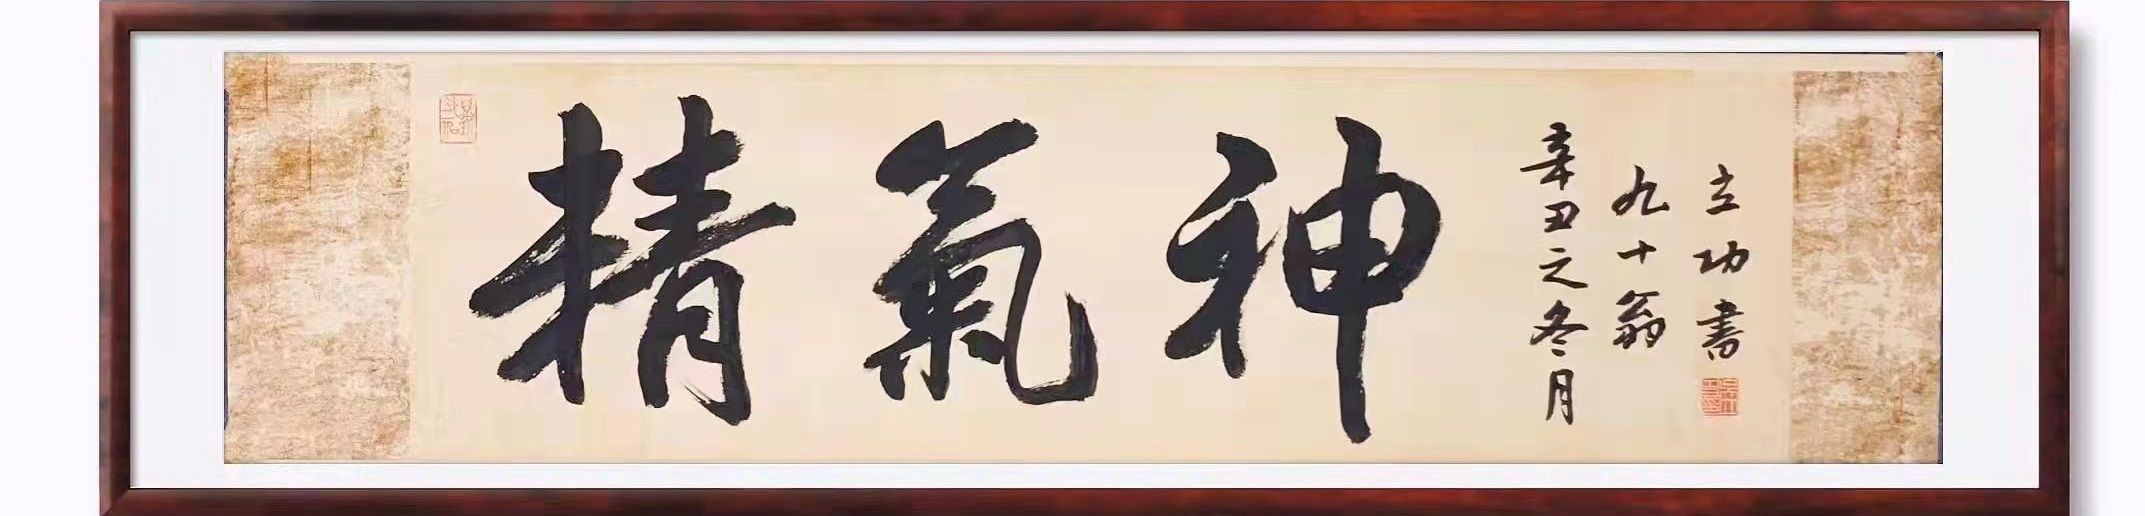 精氣神
辛丑之冬月
九十翁
立功書